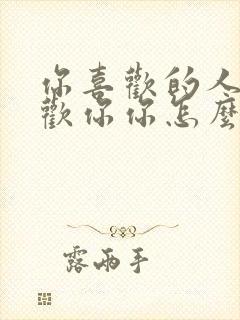 你喜歡的人
歡你你怎麼
露兩手